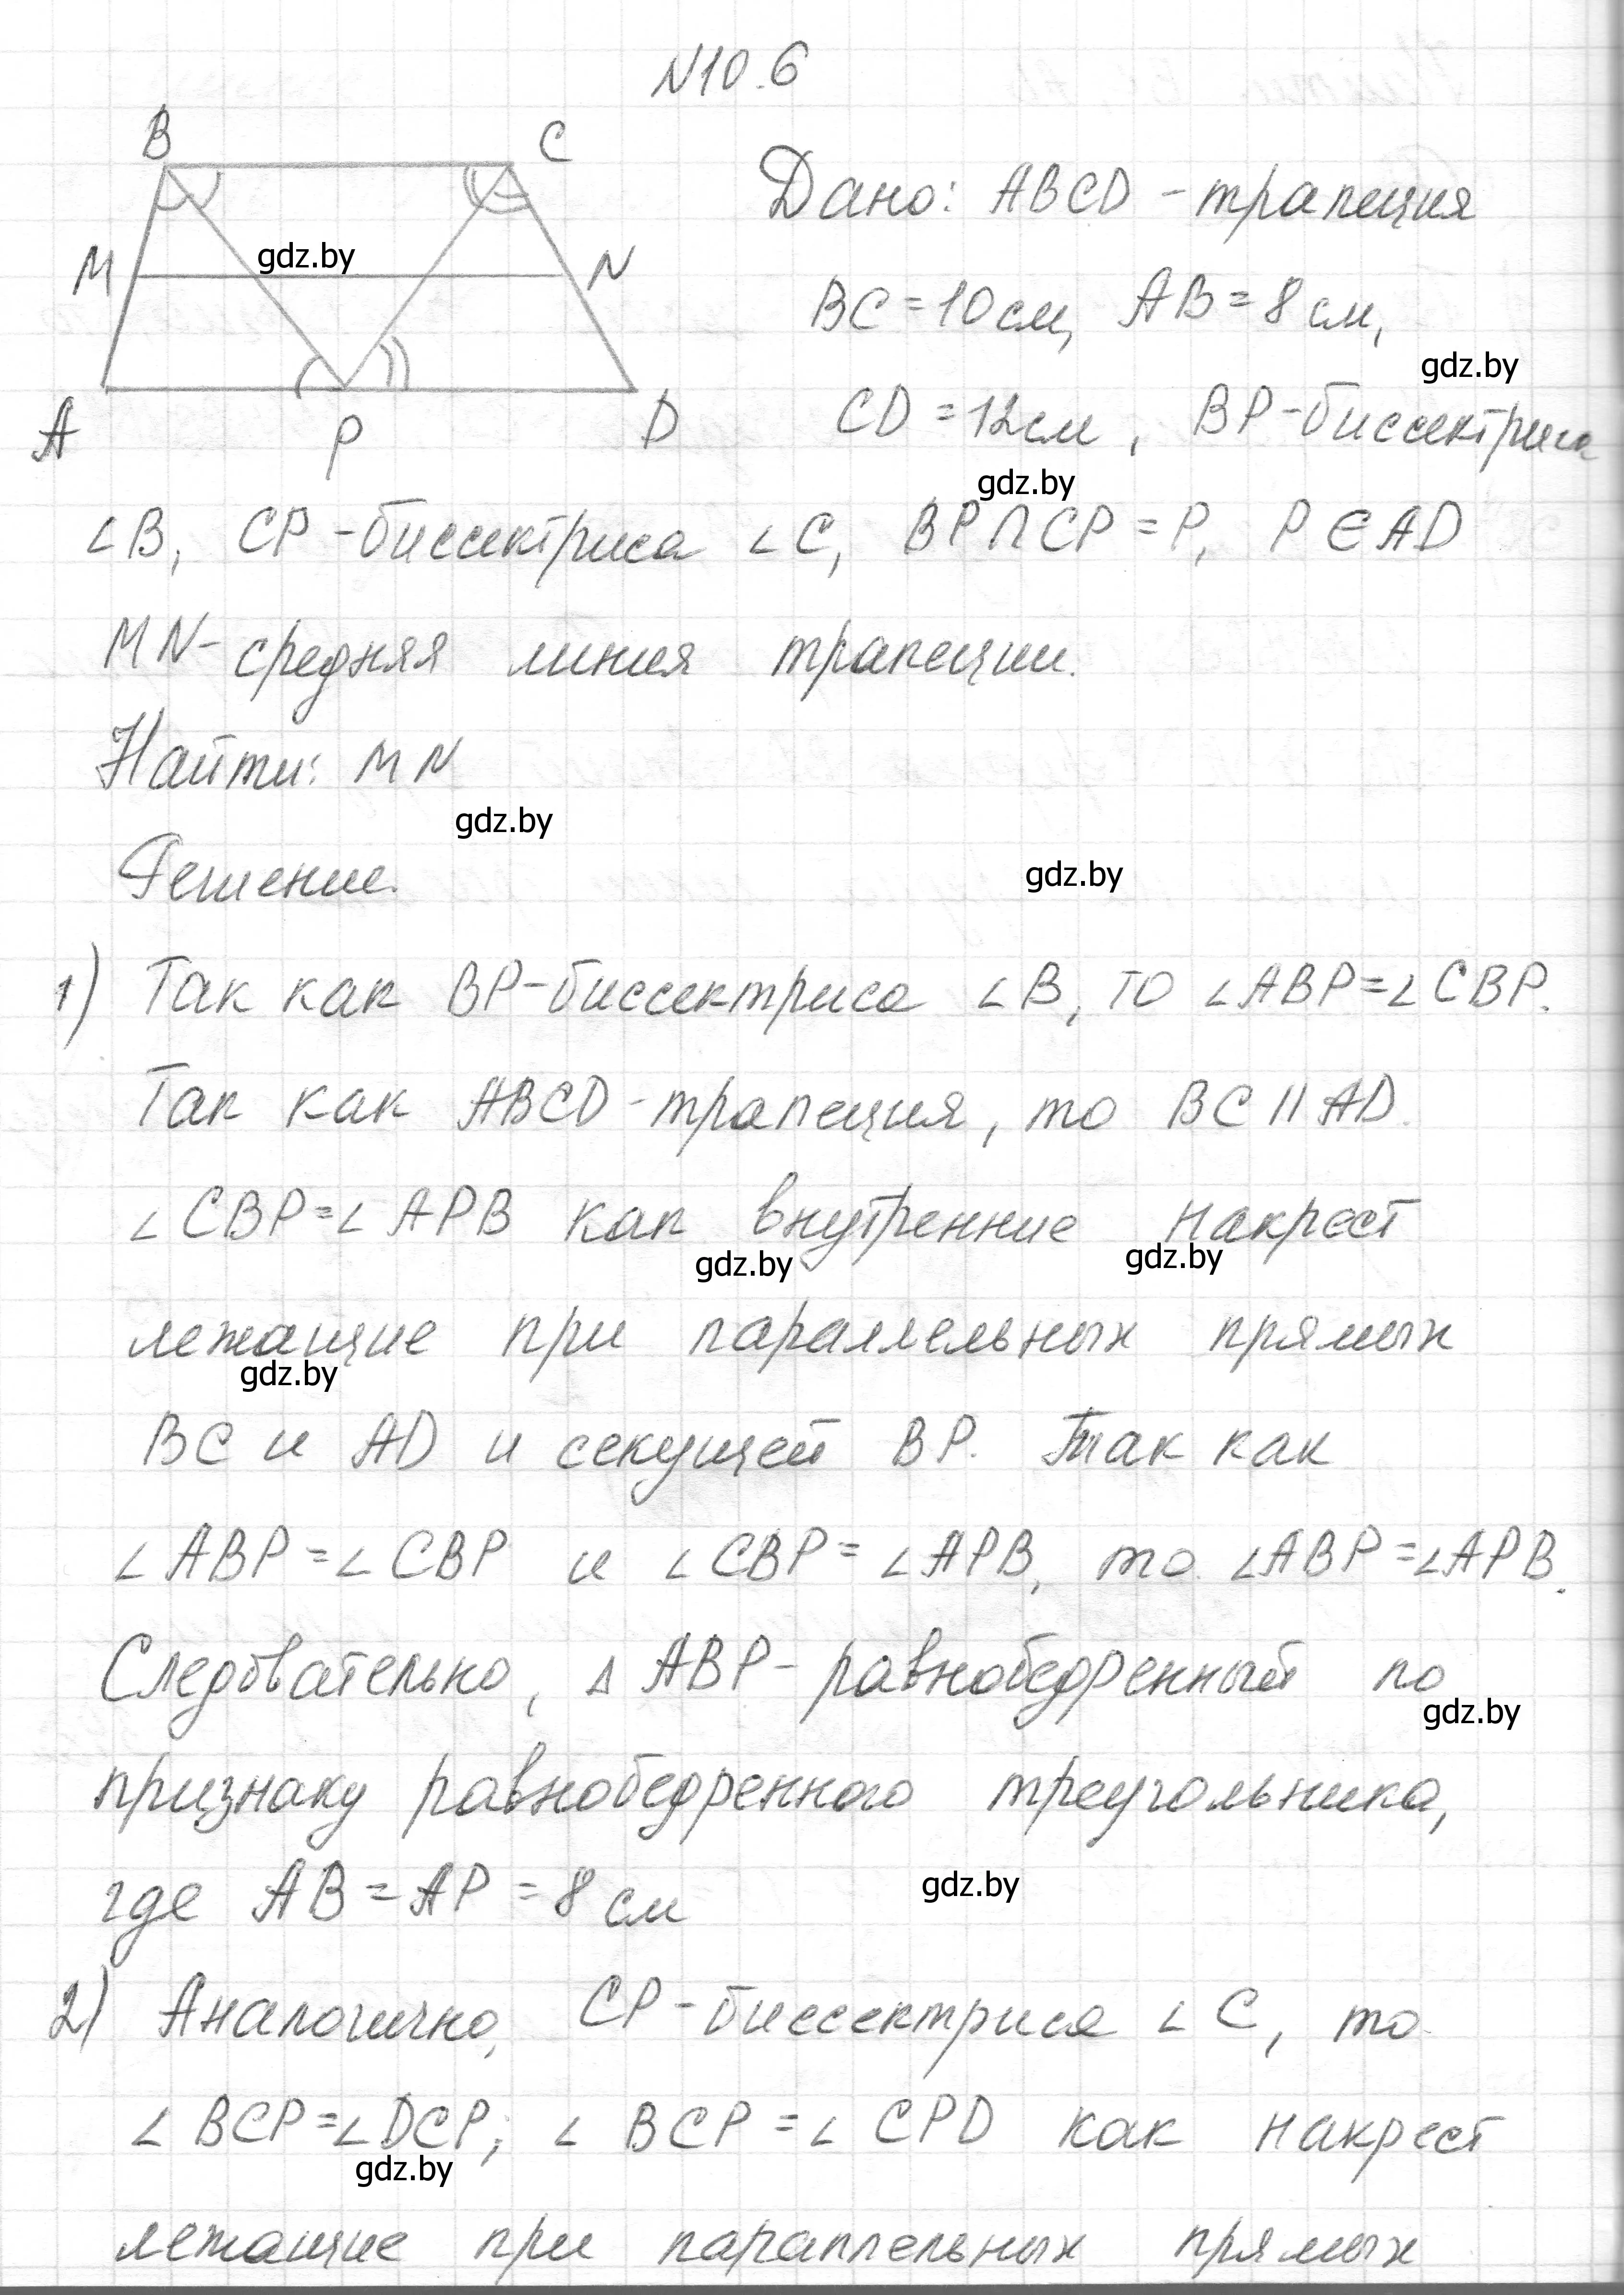 N10.6
B
C
Дано: ABCD - трапеция
gdz.by
M
N
BC = 10 см, AB = 8 см,
gdz.by
A
P
D
CD = 12 см, BP - биссектриса
gdz.by
∠B, CP - биссектриса ∠C, BP∩CP = P, P∈AD
MN - средняя линия трапеции.
Найти: MN
gdz.by
Решение.
gdz.by
1) Так как BP - биссектриса ∠B, то ∠ABP=∠CBP.
Так как ABCD - трапеция, то BC || AD.
∠CBP=∠APB как внутренние накрест
gdz.by
gdz.by
лежащие при параллельных прямых
gdz.by
BC и AD и секущей BP. Так как
∠ABP=∠CBP и ∠CBP=∠APB, то ∠ABP=∠APB.
Следовательно, ΔABP - равнобедренный по
gdz.by
признаку равнобедренного треугольника,
где AB = AP = 8 см
gdz.by
2) Аналогично, CP - биссектриса ∠C, то
∠BCP=∠DCP; ∠BCP=∠CPD как накрест
gdz.by
лежащие при параллельных прямых